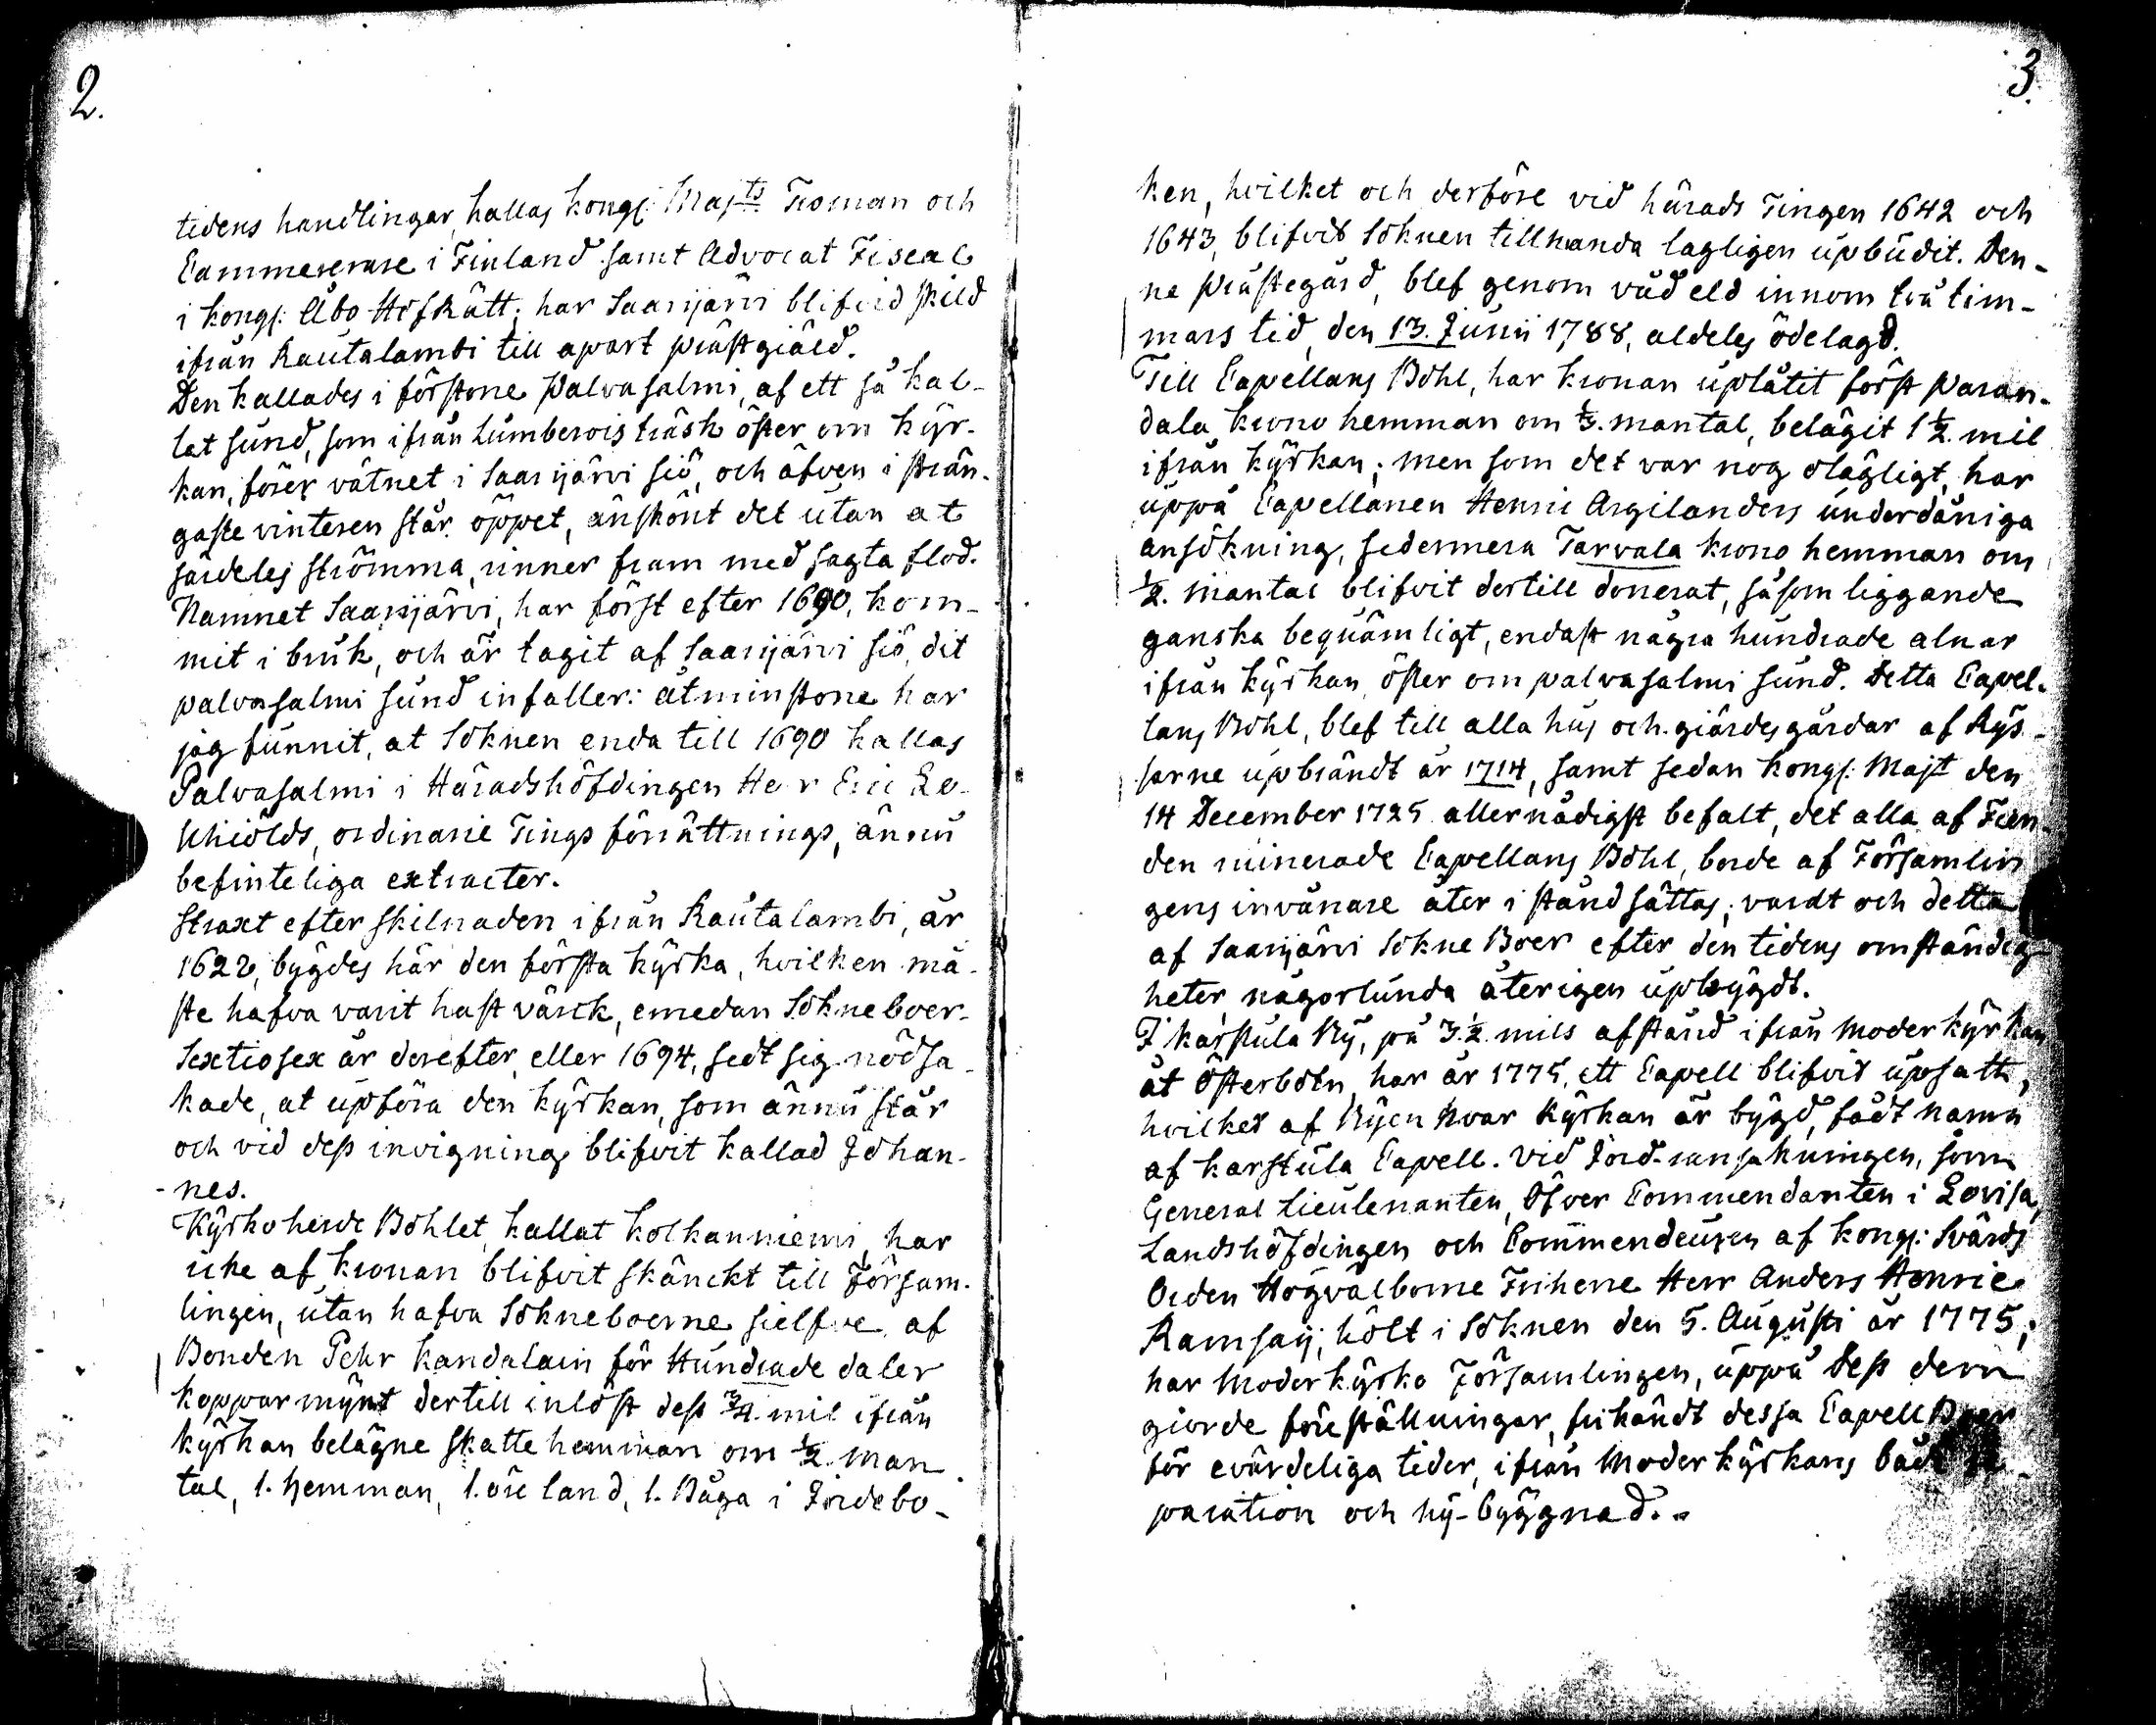 2.
tidens handlingar, kallas Kongl: Maj:ts Troman och
Cammererare i Finland samt Advocat Fiscal
i Kongl: Åbo HofRätt; har Saarijärvi blifvid skild
ifrån Rautalambi till apart präst giäld.
Den kallades i förstone Palvasalmi, af ett så kal-
lat sund, som ifrån Lumberois träsk öster om kyr-
kan, förer vatnet i Saarijärvi siö, och äfven i strän-
gaste vinteren står öppet, änskönt det utan at
särdeles strömma, rinner fram med sagta flod.
Namnet Saarijärvi, har först efter 1690, kom-
mit i bruk, och är tagit af Saarijärvi siö, dit
palvasalmi sund infaller: åtminstone har
jag funnit, at Soknen enda till 1690 kallas
Palvasalmi i Häradshöfdingen Herr Eric Le-
khiölds, ordinarie Tings förrättnings, ännu
befinteliga extracter.
Straxt efter skilnaden ifrån Rautalambi, år
1628, bygdes här den första kyrka, hvilken må-
ste hafva varit hast värck, emedan Sokneboer-
Sextiosex år derefter, eller 1694, sedt sig nödsa-
kade, at upföra den kyrkan, som ännu står
och vid dess invigning blifvit kallad Johan-
-nes.
Kyrkoherde Bohlet, kallat Kolkanniemi, har
icke af Kronan blifvit skänckt till Försam-
lingen, utan hafva Sokneboerne sielfve af
Bonden Pehr Kandalain för Hundrade daler
koppar mynt dertill inlöst dess 3/4. mil ifrån
kyrkan belägne skatte hemman om 1/2. man
tal, 1. hemman, 1. öre land, 1. Båga i Jordebo-
3.
ken, hvilket och derföre vid härads Tingen 1642 och
1643, blifvit Soknen tillhanda lagligen upbudit. Den-
ne prästegård, blef genom våd eld innom två tim-
mars tid, den 13. Junii 1788, aldeles ödelagd.
Till Capellans Bohl, har Kronan uplåtit först Paran-
dala krono hemman om 1/3. mantal, belägit 1 1/2. mil
ifrån kyrkan; men som det var nog olägligt, har
uppå Capellanen Henric Argilanders underdåniga
ansökning, sedermera Tarvala krono hemman om
1/2. mantal blifvit dertill donerat, såsom liggande
ganska bequämligt, endast några hundrade alnar
ifrån kyrkan, öster om palvasalmi sund. Detta Capel-
lans Bohl, blef till alla hus och giärdesgårdar af Rys-
sarne upbrändt år 1714, samt sedan Kongl: Majt den
14 December 1725 allernådigst befalt, det alla af Fien-
den ruinerade Capellans Bohl, borde af Församlin
gens invånare åter i stånd sättas; vardt och detta
af Saarijärvi Sokne Boer efter den tidens omständig-
heter, någorlunda återigen upbygdt.
I Karstula By, på 3. 1/2. mils afstånd ifrån Moder kyrkan
åt Österbotn, har år 1775, ett Capell blifvit upsatt,
hvilket af Byen hvar kyrkan är bygd, fådt namn
af Karstula Capell. Vid Jord-ransakningen, som
General Lieutenanten, Öfver Commendanten i Lovisa,
Landshöfdingen och Commendeuren af Kongl: Svärds
Orden Högvälborne Friherre Herr Anders Henric
Ramsay; hölt i Soknen den 5. Augusti år 1775,
har Moderkyrko Församlingen, uppå Dess derv
giorde föreställningar, frikändt dessa Capell Boer
för evärdeliga tider, ifrån Moder kyrkans både re-
paration och ny-byggnad.